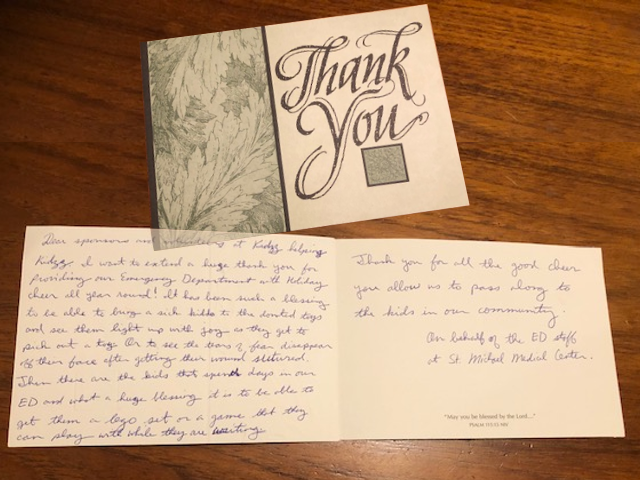 Thank
You
Dear sponsors and volunteers at Kidzz helping
Kidzz I want to extend a huge thank you for
Providing our Emergency Department with Holiday
cheer all year round! It has been such a blessing
to be able to bring a sick kiddo to the donted toys
and see them light up with joy as they get to
pick out a toy. Or to see the tears of fear disappear
off their face after getting their wound sutured.
Then there are the kids that spend days in our
ED and what a huge blessing it is to be able to
get them a lego set or a game that they
can play with while they are waiting.
Thank you for all the good cheer
you allow us to pass along to
the kids in our community.
On behalf of the ED staff
at St. Michael Medical Center.
"May you be blessed by the Lord..."
PSALM 115:15 NIV